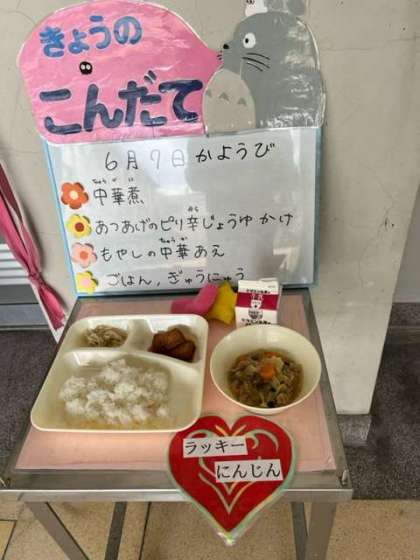 きょうの
こんだて
6月7日 かようび
中華煮
あつあげのピリ辛じょうゆかけ
もやしの中華あえ
ごはん, ぎゅうにゅう
ラッキー
にんじん